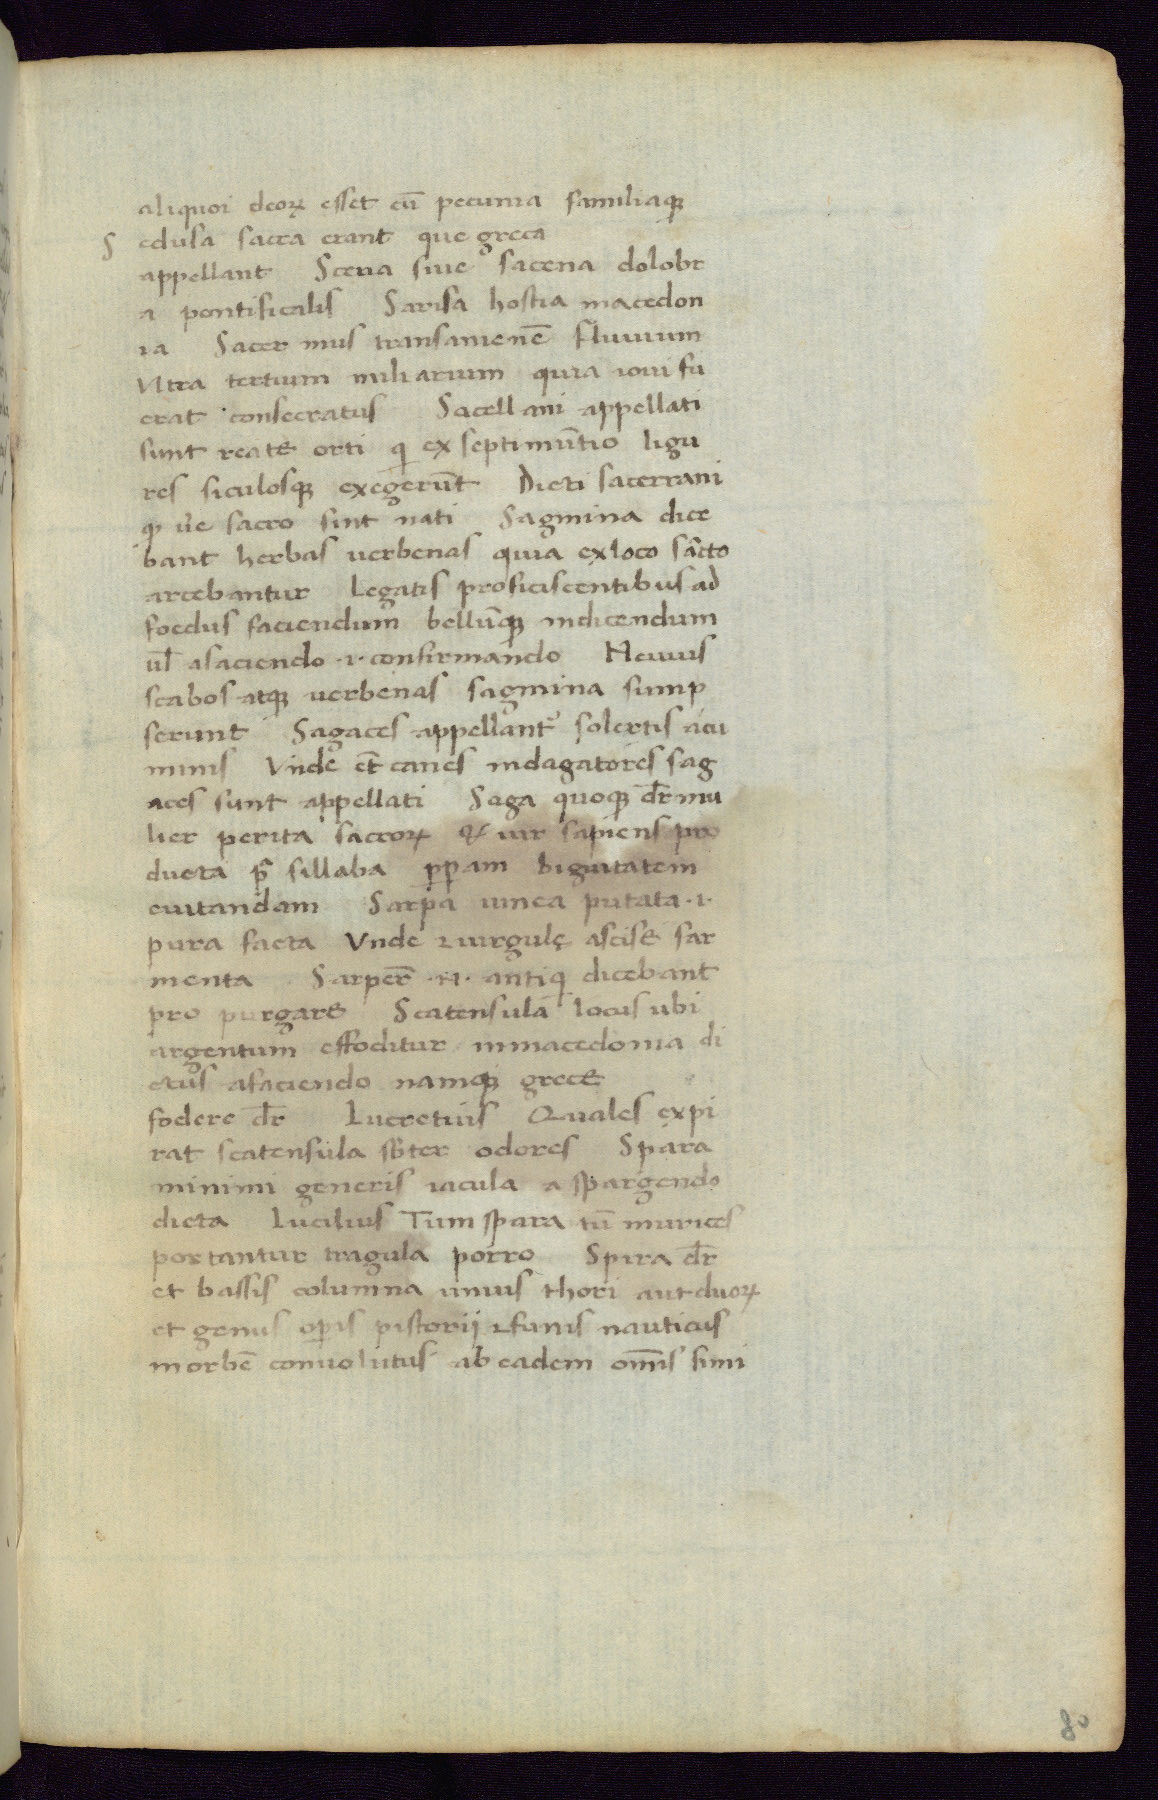 aliquoi deoꝝ esset cū pecunia familiaqꝫ
S edusa sacra erant que greca
appellant Scena siue sacena dolobr
a pontificalis Sarisa hostia macedon
ia Sacer mus transamenē fluuium
Vltra tertium miliarium quia ioui fu
erat consecratus Sacellani appellati
sunt reate orti qi ex septimūtio ligu
res siculosqꝫ exegerūt Dicti sacerrani
qꝫ ue sacro sint nati Sagmina dice
bant herbas uerbenas quia exloco sācto
arcebantur Legatis proficiscentibus ad
foedus faciendum bellūqꝫ indicendum
ul̄ afaciendo ·i· confirmando Neuius
scabos atqꝫ uerbenas sagmina sump
serunt Sagaces appellant᷑ solertis acu
minis Vnde et canes indagatores sag
aces sunt appellati Saga quoqꝫ dr̄ mu
lier perita sacroꝝ & uir sapiens pro
ducta pͥ sillaba ꝓpam biguitatem
euitandam Sarpa uinea putata ·i·
pura facta Vnde ⁊uirgulę ascise sar
menta Sarper̄ ·N· antiqi dicebant
pro purgare Scatensula locus ubi
argentum effoditur inmacedonia di
ctus afaciendo namqꝫ grece
fodere dr̄ Lucretius Quales expi
rat scatensula sb̄ter odores Spara
minimi generis iacula a spargendo
dicta Lucilius Tum spara tū murices
portantur tragula porro Spira dr̄
et bassis columna unius thori aut duoꝝ
et genus op̄is pistorij ⁊funis nauticus
inorbē conuolutus ab eadem om̄is simi
80